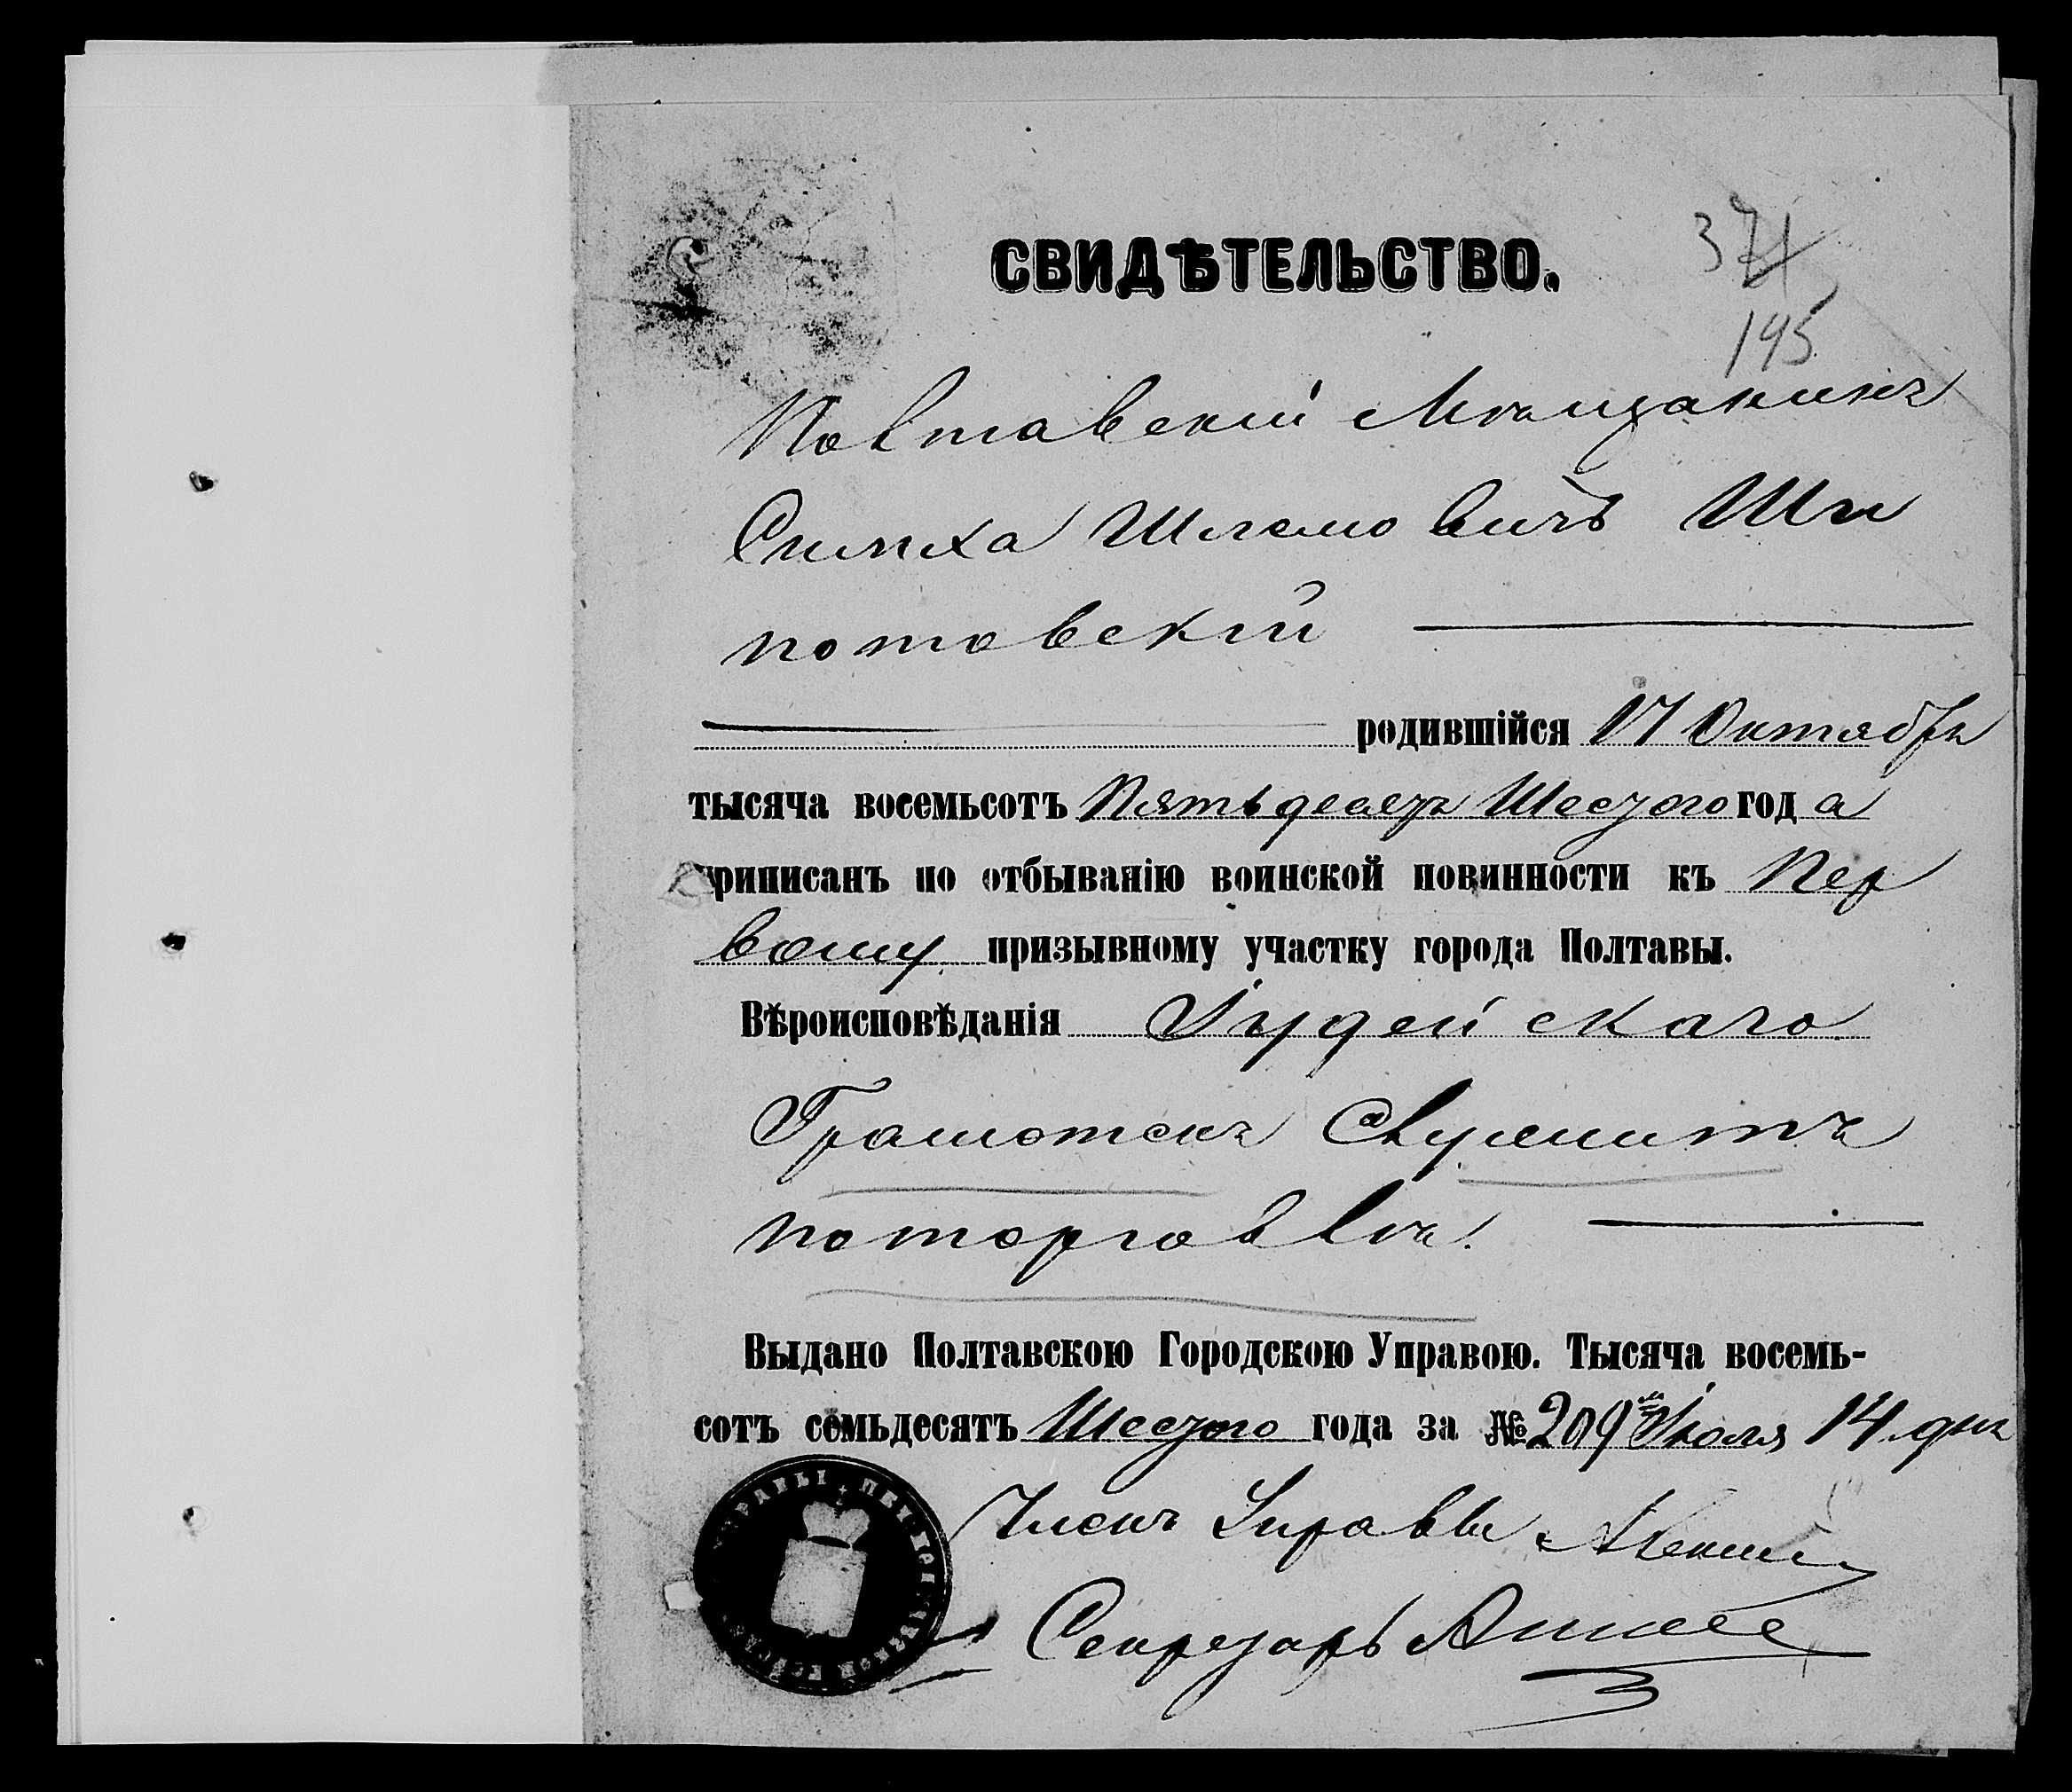 СВИДѢТЕЛЬСТВО.
371
195
Полтавскій Мѣщанинъ
Симха Шлемовичъ Ши
потовскій
родившійся 17 Октября
тысяча восемьсотъ Пятьдесятъ Шестого года
приписанъ по отбыванію воинской повинности къ Пер
вому призывному участку города Полтавы.
Вѣроисповѣданія Іудейскаго
Грамотенъ Служитъ
по торговлѣ.
Выдано Полтавскою Городскою Управою. Тысяча восемь-
сотъ семьдесятъ Шестого года за № 209 Іюля 14 дня
Членъ Управы
Секретарь